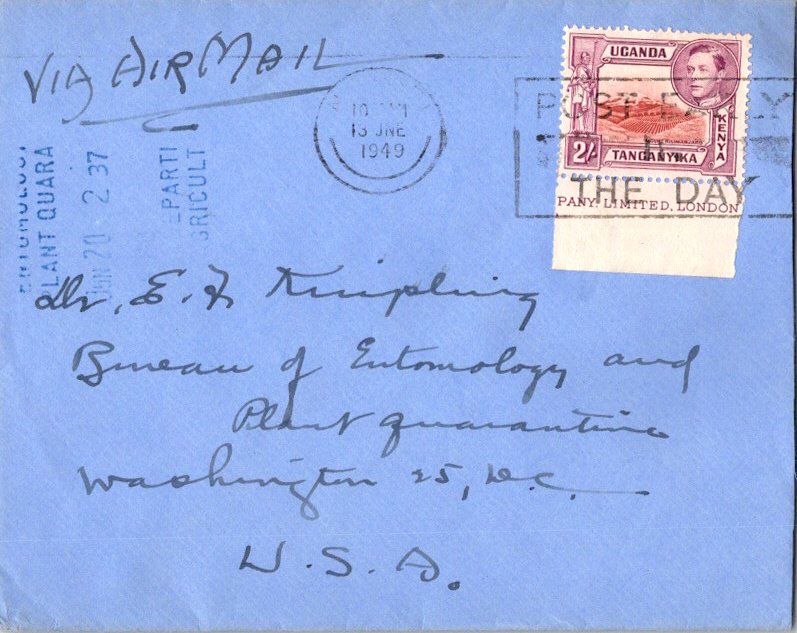 VIA AIR MAIL
10 AM
13 JNE
1949
POST EARLY
IN
THE DAY
UGANDA
KENYA
2/-
TANGANYIKA
PANY, LIMITED, LONDON
PLANT QUARA
JUN 20 2 37
EPARTI
GRICULT
Dr. E. F. Knipling
Bureau of Entomology and
Plant Quarantine
Washington 25, D.C.
U.S.A.